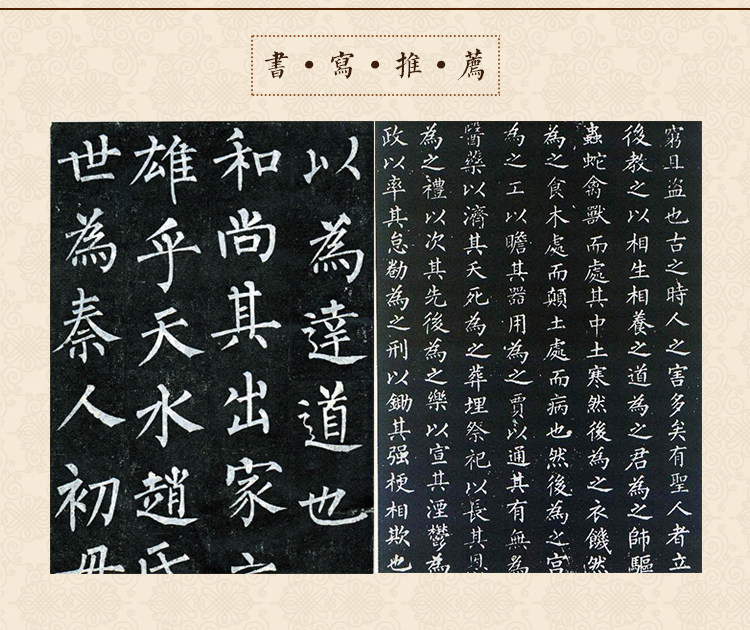 書•寫•推•薦
以為達道也
和尚其出家
雄乎天水趙氏
世為秦人初母
窮且盜也古之時人之害多矣有聖人者立
後教之以相生相養之道為之君為之師驅
蟲蛇禽獸而處其中土寒然後為之衣饑然
為之食木處而顛土處而病也然後為之宮
為之工以贍其器用為之賈以通其有無為
醫藥以濟其夭死為之葬埋祭祀以長其恩
為之禮以次其先後為之樂以宣其湮鬱為
政以率其怠勌為之刑以鋤其强梗相欺也